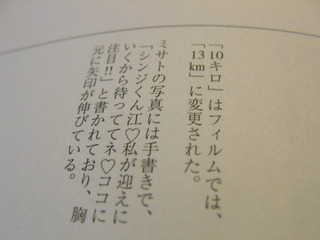 「10キロ」はフィルムでは、
「13km」に変更された。
ミサトの写真には手書きで、
「シンジくん江♡私が迎えに
いくから待っててネ♡ココに
注目!!」と書かれており、胸
元に矢印が伸びている。